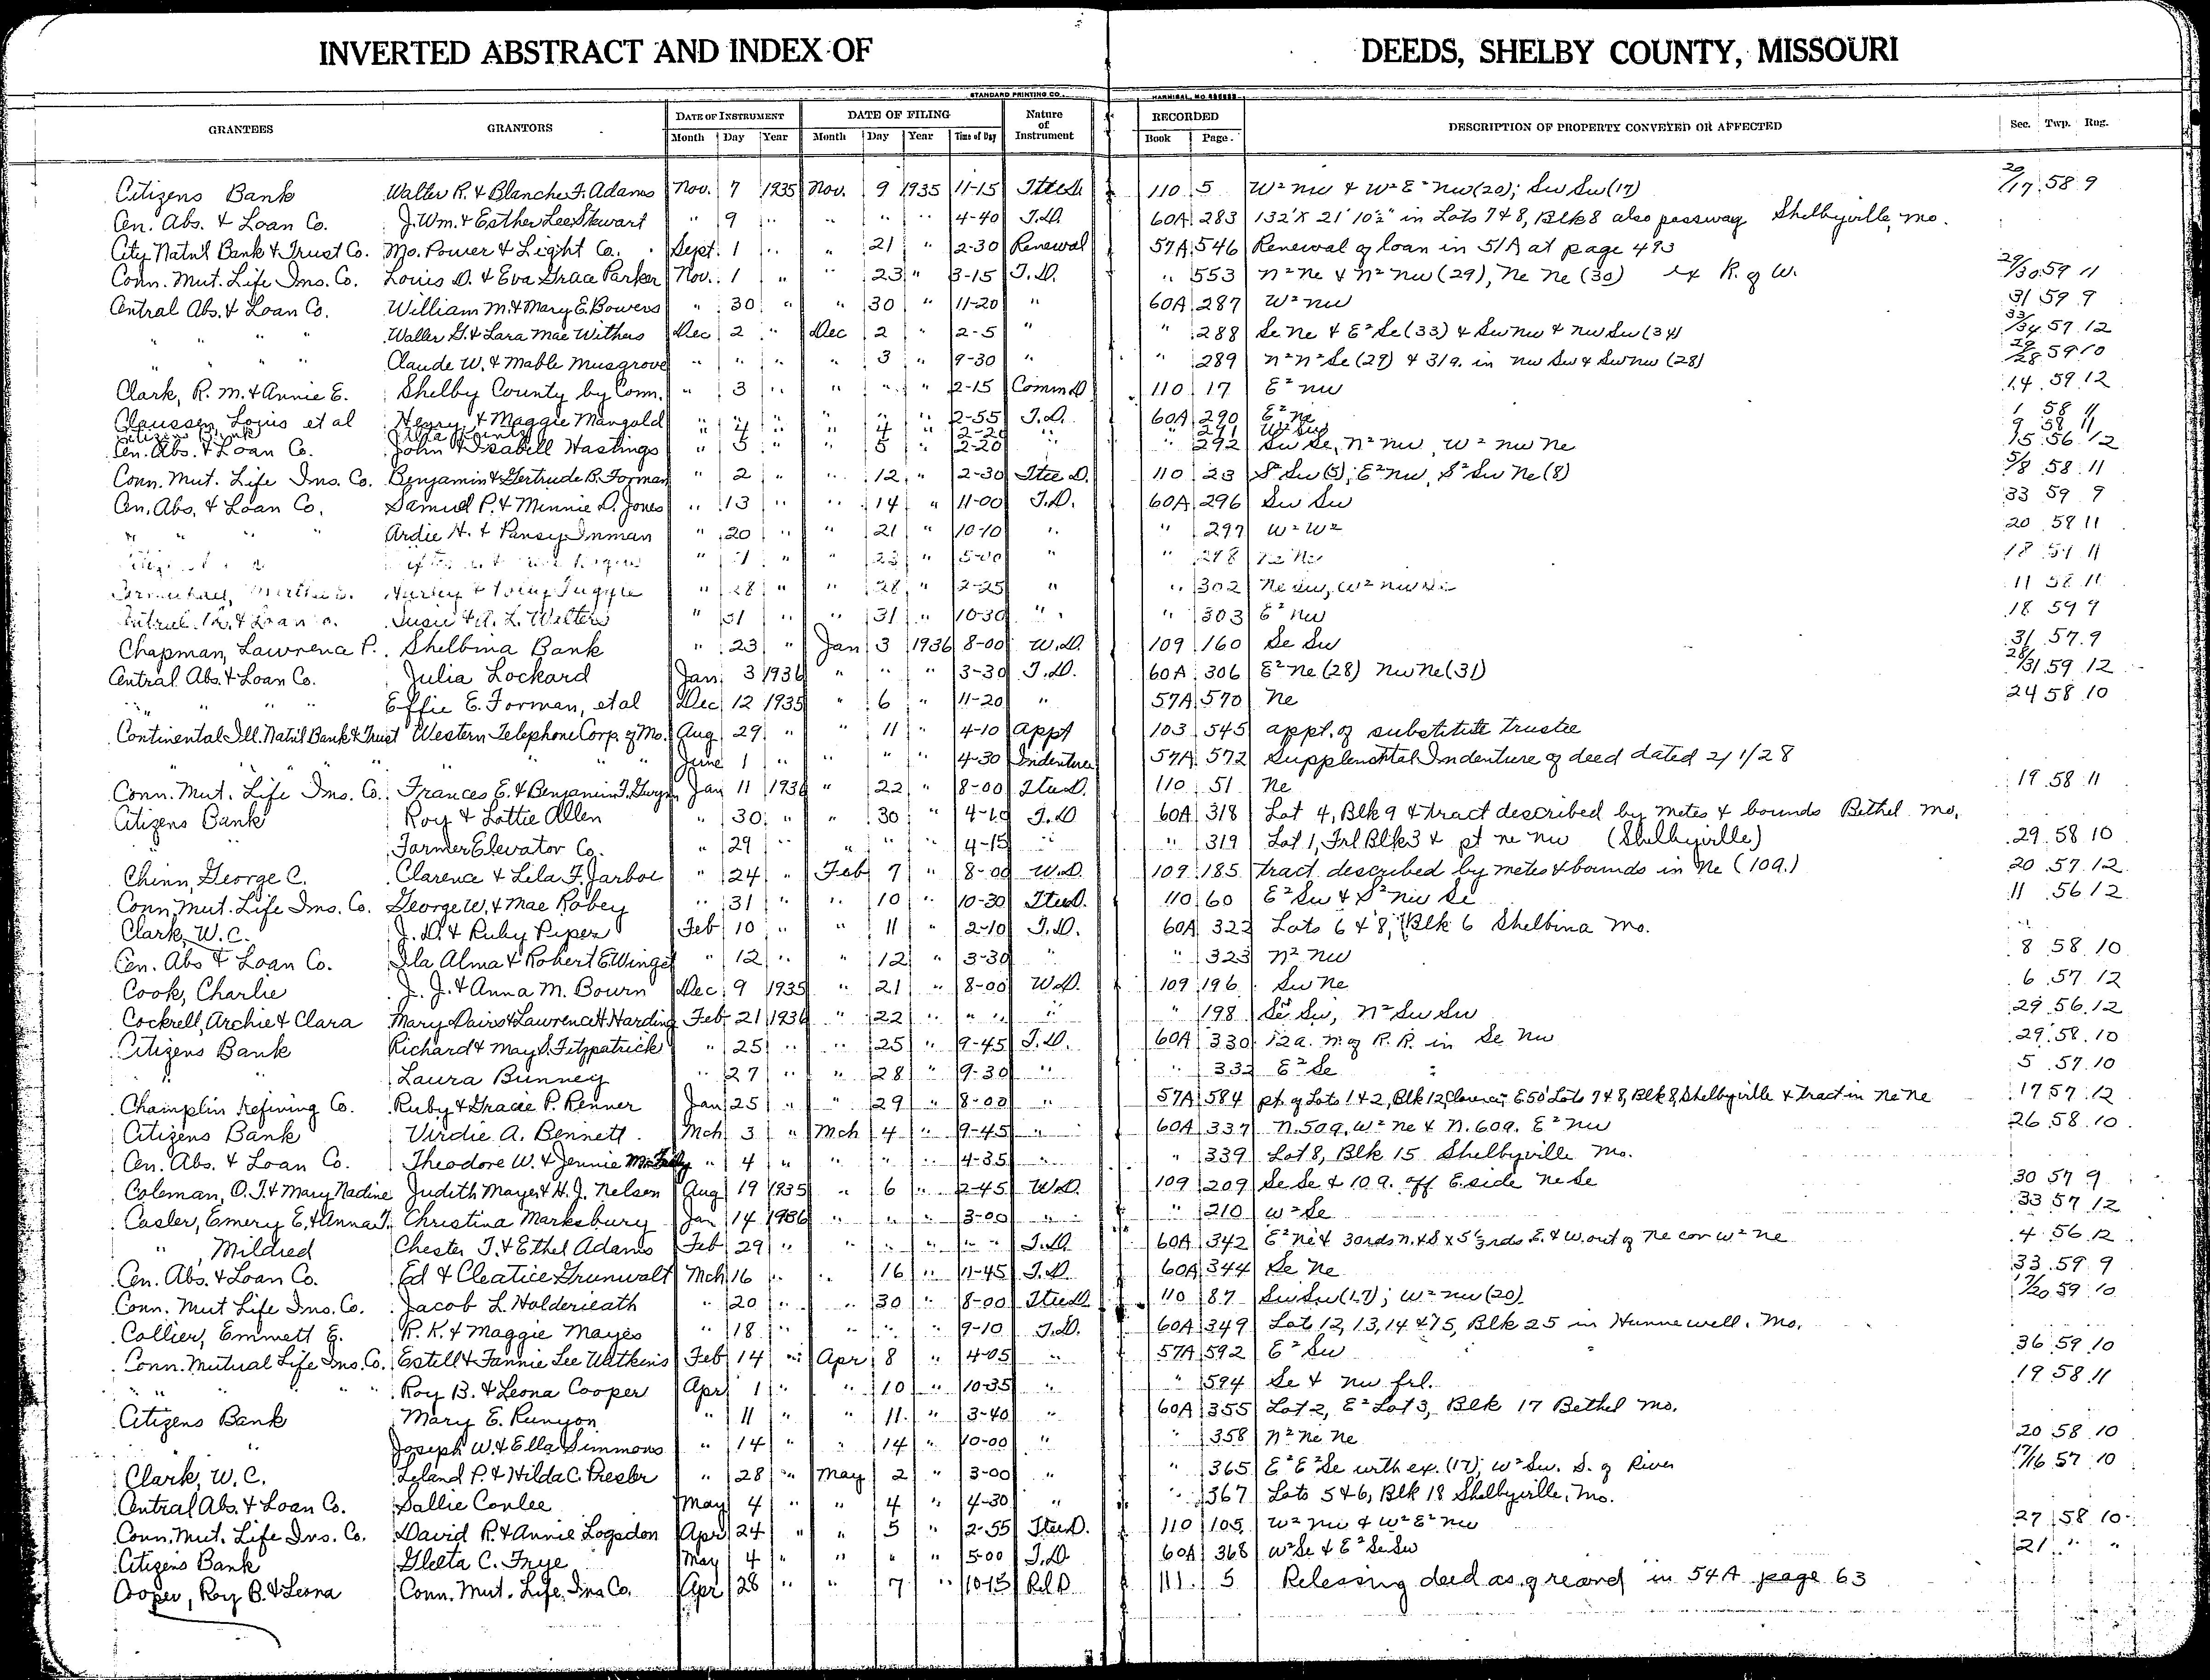 INVERTED ABSTRACT AND INDEX OF DEEDS, SHELBY COUNTY, MISSOURI
STANDARD PRINTING CO. HANNIBAL, MO
GRANTEES GRANTORS DATE OF INSTRUMENT DATE OF FILING Nature of Instrument RECORDED DESCRIPTION OF PROPERTY CONVEYED OR AFFECTED Sec. Twp. Rng.
Month Day Year Month Day Year Time of Day Book Page.
Citizens Bank Walter R. & Blanche F. Adams Nov. 7 1935 Nov. 9 1935 11-15 110 5 W² nw & W² E² nw (20); Sw Sw (17) 20/17 58 9
Cen. Abs. & Loan Co. J. Wm. & Esther Lee Stewart " 9 " " " " 4-40 T.D. 60A 283 132' X 21' 10½" in Lots 7 & 8, Blk 8 also passway Shelbyville, Mo.
City Nat'l Bank & Trust Co. Mo. Power & Light Co. Sept. 1 " " 21 " 2-30 Renewal 57A 546 Renewal of loan in 51A at page 493
Conn. Mut. Life Ins. Co. Louis D. & Eva Grace Parker Nov. 1 " " 23 " 3-15 T.D. " 553 n² ne & n² nw (29), ne ne (30) ex R. of W. 29/30 59 11
Central Abs. & Loan Co. William M. & Mary E. Bowers " 30 " " 30 " 11-20 " 60A 287 W² nw 31 59 9
" " " Walter G. & Lara Mae Withers Dec 2 " Dec 2 " 2-5 " " 288 Se ne & E² Se (33) & Sw nw & nw Sw (34) 33/34 57 12
" " " Claude W. & Mable Musgrove " " " " 3 " 9-30 " " 289 n² n² Se (29) & 31a. in nw Sw & Sw nw (28) 29/28 59 10
Clark, R. M. & Annie E. Shelby County by Com. " 3 " " " " 2-15 Comm D 110 17 E² nw 14 59 12
Claussen, Louis et al Henry & Maggie Mangold " 4 " " 4 " 2-55 T.D. 60A 290 E² ne 1 58 11
Citizens Bank 291 9 58 11
Cen. Abs. & Loan Co. John & Isabell Hastings " 5 " " 5 " 2-20 " " 292 Sw Se, n² nw, W² nw ne 15 56 12
Conn. Mut. Life Ins. Co. Benjamin & Gertrude B. Forman " 2 " " 12 " 2-30 Ttee D. 110 23 S² Sw (5); E² nw, S² Sw ne (8) 5/8 58 11
Cen. Abs. & Loan Co. Samuel P. & Minnie D. Jones " 13 " " 14 " 11-00 T.D. 60A 296 Sw Sw 33 59 9
" " " Ardie H. & Pansy Inman " 20 " " 21 " 10-10 " " 297 W² W² 20 58 11
" " 23 " 5-00 " " 298 11
" 28 " " 28 " 2-25 " " 302 ne Sw, W² nw 11 58 11
Central Loan Co. Susie & L. Walters " 31 " " 31 " 10-30 " " 303 E² nw 18 59 9
Chapman, Lawrence P. Shelbina Bank " 23 " Jan 3 1936 8-00 W.D. 109 160 Se Sw 31 57 9
Central Abs. & Loan Co. Julia Lockard Jan 3 1936 " " " 3-30 T.D. 60A 306 E² ne (28) nw ne (31) 28/31 59 12
" " " Effie E. Forman, et al Dec 12 1935 " 6 " 11-20 " 57A 570 ne 24 58 10
Continental Ill. Nat'l Bank & Trust Western Telephone Corp. of Mo. Aug 29 " " 11 " 4-10 Appt 103 545 appt. of substitute trustee
" " " " " " June 1 " " " " 4-30 Indenture 57A 572 Supplemental Indenture of deed dated 2/1/28
Conn. Mut. Life Ins. Co. Frances E. & Benjamin F. Gwyn Jan 11 1936 " 22 " 8-00 Ttee D. 110 51 ne 19 58 11
Citizens Bank Roy & Lottie Allen " 30 " " 30 " 4-10 T.D 60A 318 Lot 4, Blk 9 & tract described by metes & bounds Bethel Mo.
" Farmer Elevator Co. " 29 " " " " 4-15 " " 319 Lot 1, Frl Blk 3 & pt ne nw (Shelbyville) 29 58 10
Chinn, George C. Clarence & Lila F. Jarboe " 24 " Feb 7 " 8-00 W.D. 109 185 tract described by metes & bounds in ne (10a.) 20 57 12
Conn. Mut. Life Ins. Co. George W. & Mae Robey " 31 " " 10 " 10-30 Ttee D. 110 60 E² Sw & S² nw Se 11 56 12
Clark, W. C. J. D. & Ruby Piper Feb 10 " " 11 " 2-10 T.D. 60A 322 Lots 6 & 8, Blk 6 Shelbina Mo.
Cen. Abs & Loan Co. Ila Alma & Robert E. Winget " 12 " " 12 " 3-30 " " 323 n² nw 8 58 10
Cook, Charlie J. J. & Anna M. Bourn Dec 9 1935 " 21 " 8-00 W.D. 109 196 Sw ne 6 57 12
Cockrell, Archie & Clara Mary Davis & Lawrence H. Harding Feb 21 1936 " 22 " " " " " 198 Se Sw, n² Sw Sw 29 56 12
Citizens Bank Richard & May S. Fitzpatrick " 25 " " 25 " 9-45 T.D. 60A 330 12a. n. of R. R. in Se nw 29 58 10
" " Laura Bunney " 27 " " 28 " 9-30 " " 332 E² Se 5 57 10
Champlin Refining Co. Ruby & Gracie P. Renner Jan 25 " " 29 " 8-00 " 57A 584 pt. of Lots 1 & 2, Blk 12, Clarence; E 50' Lots 7 & 8, Blk 8, Shelbyville & tract in ne ne 17 57 12
Citizens Bank Virdie A. Bennett Mch 3 " Mch 4 " 9-45 " 60A 337 n. 50a. W² ne & n. 60a. E² nw 26 58 10
Cen. Abs. & Loan Co. Theodore W. & Jennie " 4 " " " " 4-35 " " 339 Lot 8, Blk 15 Shelbyville Mo.
Coleman, O. T. & Mary Nadine Judith Mayer & H. J. Nelson Aug 19 1935 " 6 " 2-45 W.D. 109 209 Se Se & 10 a. off E. side ne Se 30 57 9
Casler, Emery E. & Anna T. Christina Marksbury Jan 14 1936 " " " 3-00 " " 210 W² Se 33 57 12
" , Mildred Chester T. & Ethel Adams Feb 29 " " " " " " T.D. 60A 342 E² ne & 30 rds n. & S x 5⅓ rds E. & W. out of ne cor W² ne 4 56 12
Cen. Abs. & Loan Co. Ed & Cleatice Grunwalt Mch 16 " " 16 " 11-45 T.D. 60A 344 Se ne 33 59 9
Conn. Mut Life Ins. Co. Jacob L. Holderieath " 20 " " 30 " 8-00 Ttee D 110 87 Sw Sw (17); W² nw (20) 17/20 59 10
Collier, Emmett E. R. K. & Maggie Mayes " 18 " " " " 9-10 T.D. 60A 349 Lots 12, 13, 14 & 15, Blk 25 in Hunnewell, Mo.
Conn. Mutual Life Ins. Co. Estell & Fannie Lee Watkins Feb 14 " Apr 8 " 4-05 " 57A 592 E² Sw 36 59 10
" " " " Roy B. & Leona Cooper Apr 1 " " 10 " 10-35 " " 594 Se & nw frl. 19 58 11
Citizens Bank Mary E. Runyon " 11 " " 11 " 3-40 " 60A 355 Lot 2, E² Lot 3, Blk 17 Bethel Mo.
" Joseph W. & Ella Simmons " 14 " " 14 " 10-00 " " 358 n² ne ne 20 58 10
Clark, W. C. Leland P. & Hilda C. Presler " 28 " May 2 " 3-00 " " 365 E² E² Se with ex. (17), W² Sw. S. of River 17/16 57 10
Central Abs. & Loan Co. Sallie Conlee May 4 " " 4 " 4-30 " " 367 Lots 5 & 6, Blk 18 Shelbyville, Mo.
Conn. Mut. Life Ins. Co. David R. & Annie Logsdon Apr 24 " " 5 " 2-55 Ttee D. 110 105 W² nw & W² E² nw 27 58 10
Citizens Bank Gleeta C. Frye May 4 " " " " 5-00 T.D. 60A 368 W² Se & E² Se Sw 21 " "
Cooper, Roy B. & Leona Conn. Mut. Life Ins Co. Apr 28 " " 7 " 10-15 Rel D 111 5 Releasing deed as of record in 54A page 63